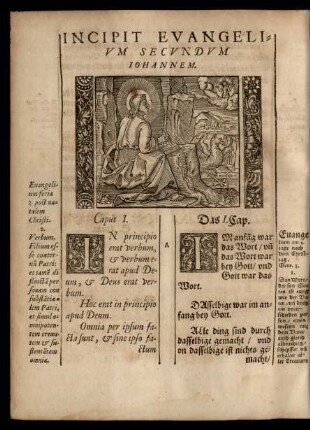 INCIPIT EVANGELI-
VM SECVNDVM
IOHANNEM.
Evangeli-
um feria
3 post na-
talem
Christi.
1.
Verbum,
Filium es-
se coæter-
num Patri:
et tanquã di-
stinctã per-
sonam con-
substantia-
lem Patri,
et simul o-
mnipoten-
tem creato-
rem & su-
stentatorem
omnia.
Caput I.
IN principio
erat verbum,
& verbum e-
rat apud De-
um, & Deus erat ver-
bum.
Hoc erat in principio
apud Deum.
Omnia per ipsum fa-
cta sunt, & sine ipso fa-
ctum
A
Das I. Cap.
IM anfãg war
das Wort / vñ
das Wort war
bey Gott / vnd
Gott war das
Wort.
DAsselbige war im an-
fang bey Gott.
Alle ding sind durch
dasselbige gemacht / vnd
on dasselbige ist nichts ge-
macht /
Euange